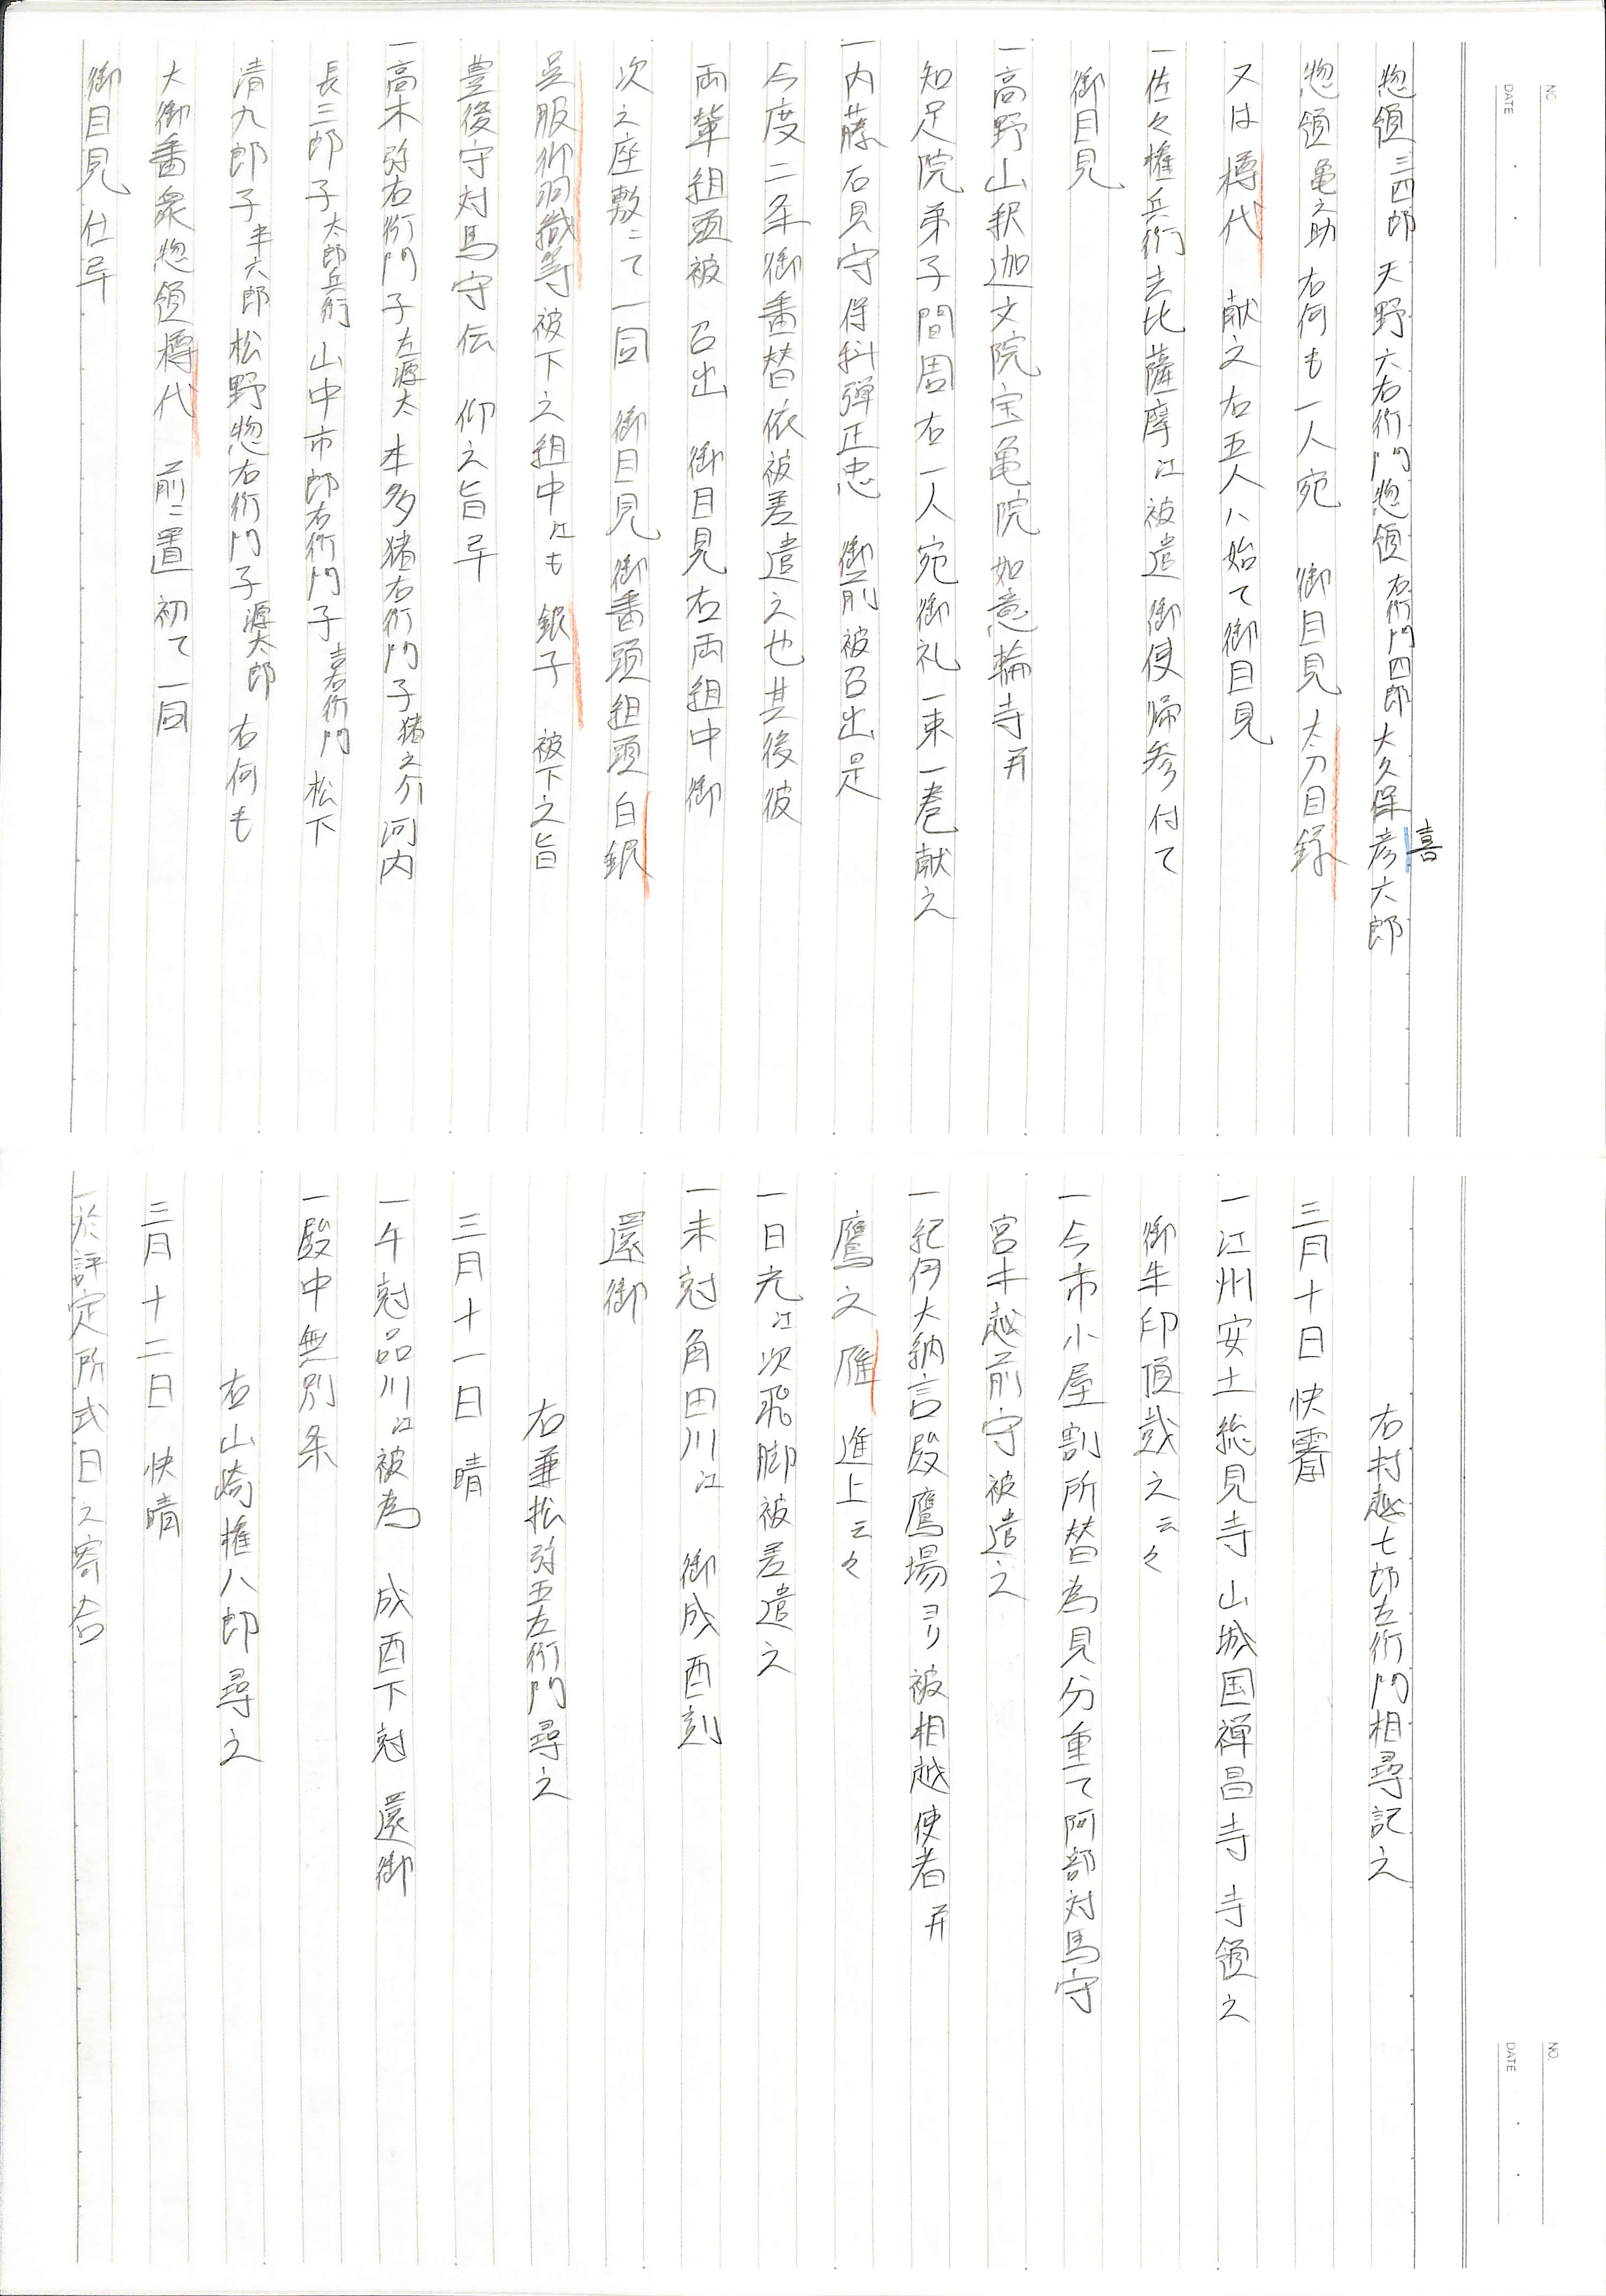 NO.
DATE
惣領三四郎 天野六右衛門惣領 右衛門四郎 大久保彦六郎
喜
惣領亀之助 右何も一人宛 御目見 太刀目録
又は樽代 献之右五人ハ始て御目見
一佐々権兵衛去比薩摩江被遣 御使帰参付て
御目見
一高野山釈迦文院宝亀院如意輪寺并
知足院弟子間周右一人宛御礼一束一巻献之
一内藤石見守保科弾正忠 御前被召出是
今度二条御番替依被差遣之也其後彼
両輩組頭被 召出 御目見右両組中御
次之座敷ニて一同 御目見御番頭組頭白銀
呉服御羽織等被下之組中江も 銀子 被下之旨
豊後守対馬守伝 仰之旨畢
一高木弥右衛門子左源太 本多猪右衛門子猪之介河内
長三郎子太郎兵衛 山中市郎右衛門子喜右衛門 松下
清九郎子半六郎 松野惣右衛門子源太郎 右何も
大御番衆惣領樽代 前ニ置初て一同
御目見仕畢
NO.
DATE
右村越七郎左衛門相尋記之
三月十日 快霽
一江州安土総見寺山城国禅昌寺寺領之
御朱印頂戴之云々
一今市小屋割所替為見分重て阿部対馬守
宮木越前守被遣之
一紀伊大納言殿鷹場ヨリ被相越使者并
鷹之雁 進上云々
一日光江次飛脚被差遣之
一未刻角田川江 御成酉刻
還御
右兼松弥五左衛門尋之
三月十一日 晴
一午刻品川江被為 成酉下刻 還御
一殿中無別条
右山崎権八郎尋之
三月十二日 快晴
一於評定所式日之寄合